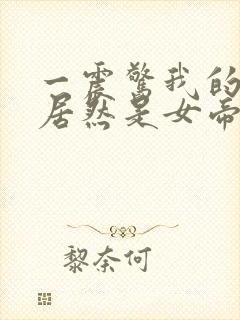 一震惊我的
居然是女帝
黎奈何